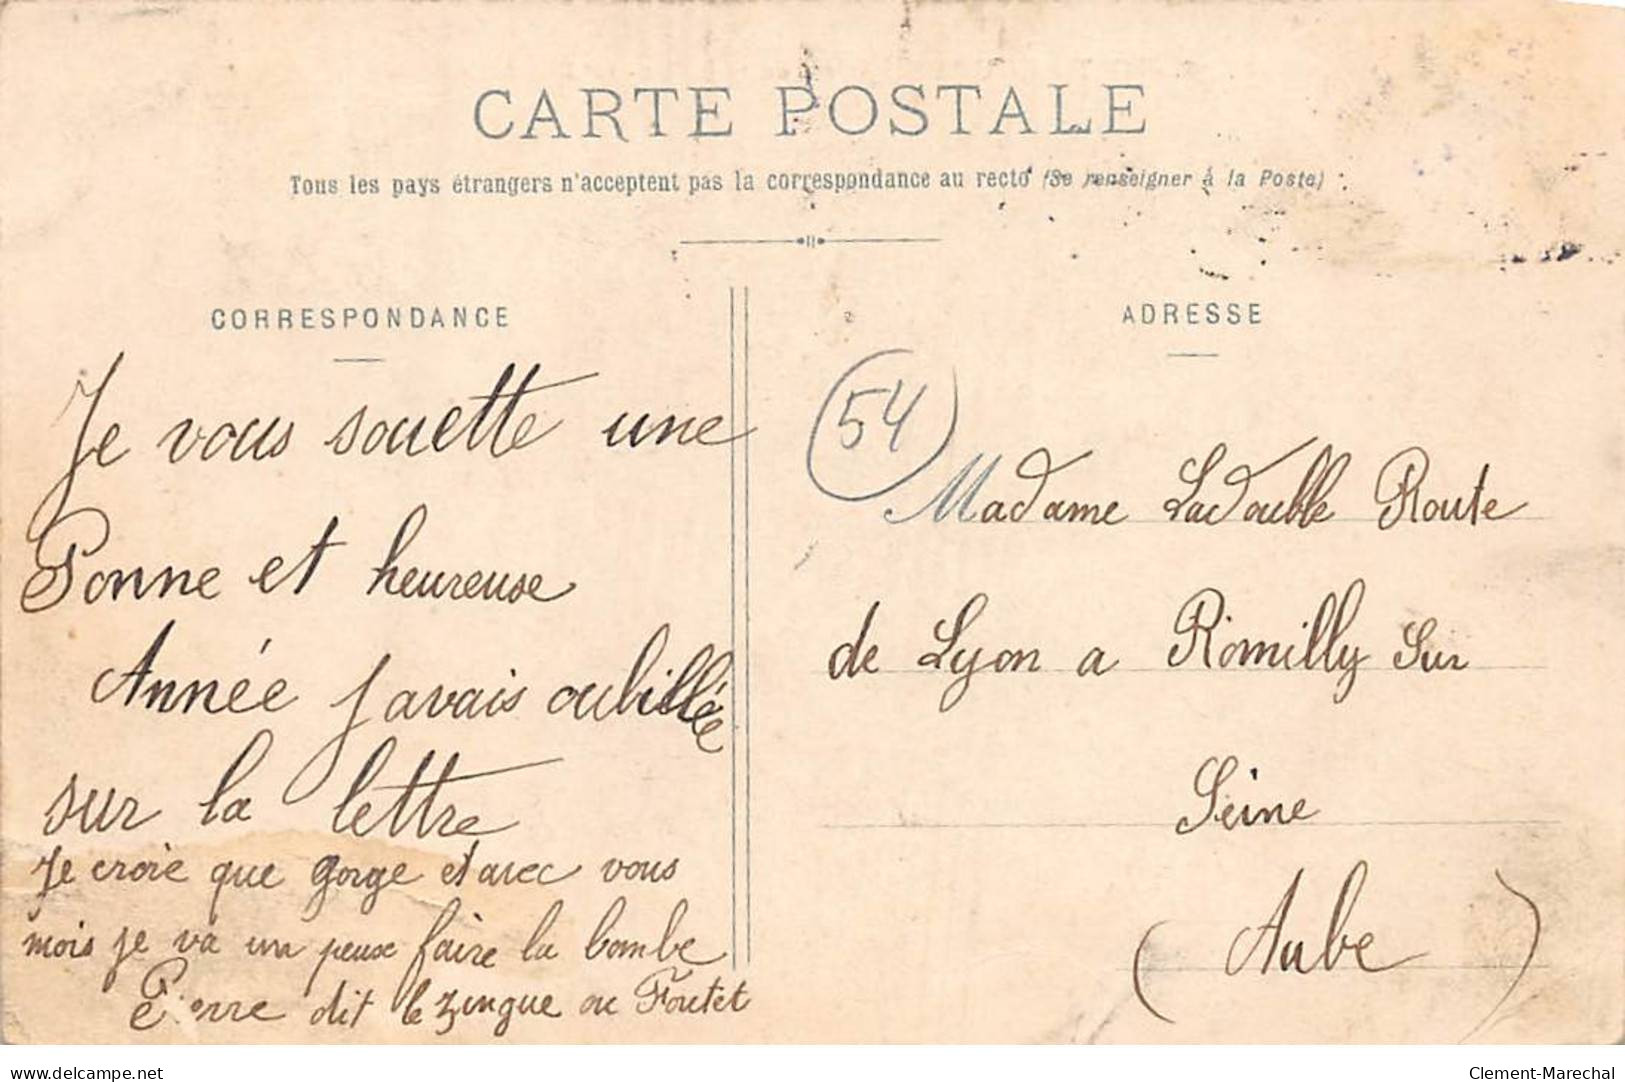 CARTE POSTALE
Tous les pays étrangers n'acceptent pas la correspondance au recto (Se renseigner à la Poste)
CORRESPONDANCE
Je vous souette une
Bonne et heureuse
Année j avais oubillée
sur la lettre
Je croie que gorge et avec vous
mois je va un peux faire la bombe
Pierre dit le zingue ou Foutet
ADRESSE
54
Madame Ladouble Route
de Lyon a Romilly Sur
Seine
(Aube)
delcampe.net
Clement-Marechal